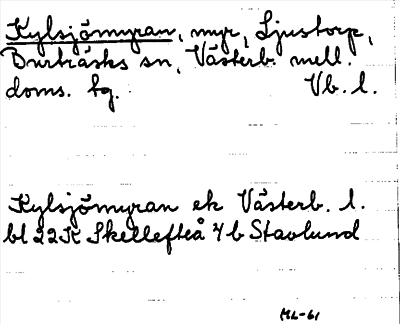 Kylsjömyran, myr, Ljustorp,
Burträsks sn, Västerb. mell.
doms. tg. Vb. l.
Kylsjömyran ek Västerb. l.
bl 22K Skellefteå 4b Stavlund
ML-61